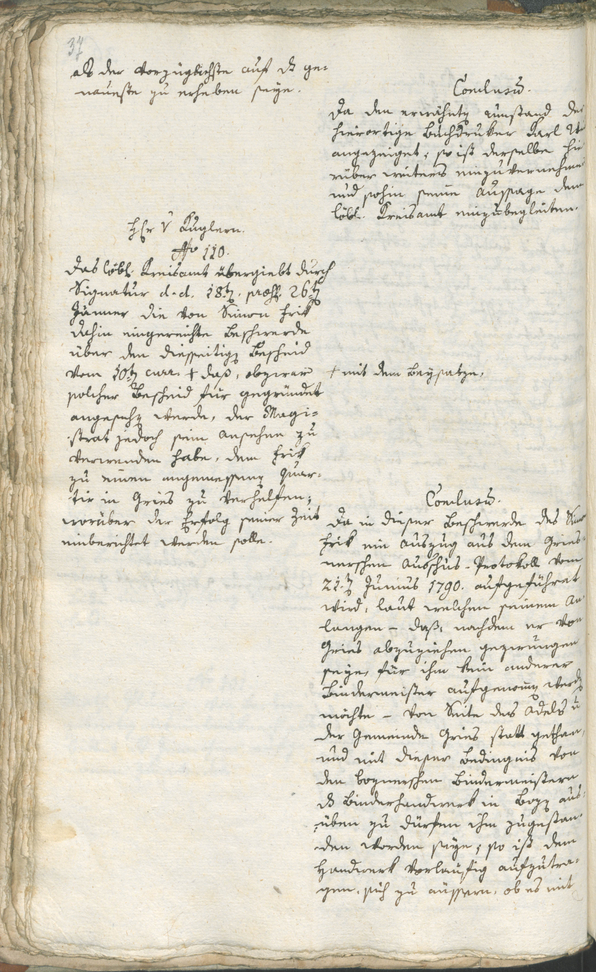 37
als der vorzüglichste auf ds ge=
naueste zu erheben seye.
Conclusum.
Da den erwähnten Umstand der
hierortige Buchdruker Karl
angezeiget; so ist derselbe hie
rüber weiters einzuvernehmen
und sohin seine Aussage dem
löbl. Kreisamt einzubegleiten.
Hr v Kuglern.
No 110.
Das löbl. Kreisamt übergiebt durch
Signatur d. d. 18t. 26t
Jänner die von Simon Frik
dahin eingereichte Beschwerde
über den diesseitigen Bescheid
vom 10t curr. † daß, obzwar
† mit dem Beysatze,
solcher Bescheid für gegründet
angesehen werde, der Magi=
strat jedoch sein Ansehen zu
verwenden habe, dem Frik
zu einem angemessenen Quar=
tir in Gries zu verhelfen;
worüber der Erfolg seiner Zeit
einberichtet werden solle.
Conclusum.
Da in dieser Beschwerde des
Frik ein Auszug aus dem Gries
nerschen Ausschus-Protokoll vom
21t Junius 1790. aufgeführet
wird, laut welchen seinem An
langen – daß, nachdem er von
Gries abzuziehen gezwungen
seye, für ihm kein anderer
Bindermeister aufgenommen werden
möchte – von Seite des Adels u
der Gemeinde Gries statt gethan,
und mit dieser Bedingnis von
den boznerschen Bindermeistern
ds Binderhandwerk in Bozen aus=
üben zu dürfen ihm zugestan=
den worden seye; so ist dem
Handwerk vorläufig aufzutra=
gen, sich zu äussern, ob es mit